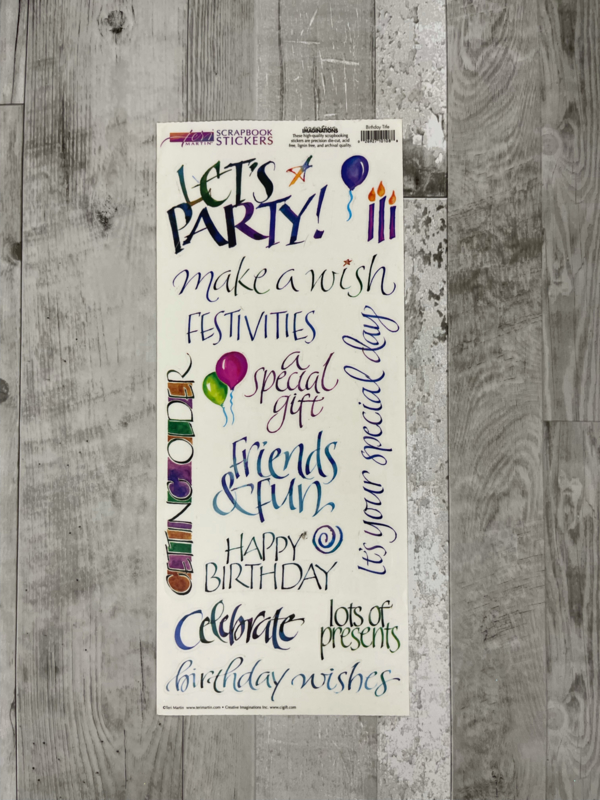 teri
MARTIN™
SCRAPBOOK
STICKERS
IMAGINATIONS
These high-quality scrapbooking
stickers are precision die-cut, acid
free, lignin free, and archival quality.
Birthday Title
LET'S
PARTY!
make a wish
FESTIVITIES
a
special
gift
It's your special day
GETTING OLDER
friends
& fun
HAPPY
BIRTHDAY
Celebrate
lots of
presents
birthday wishes
©Teri Martin www.terimartin.com • Creative Imaginations Inc. www.cigift.com